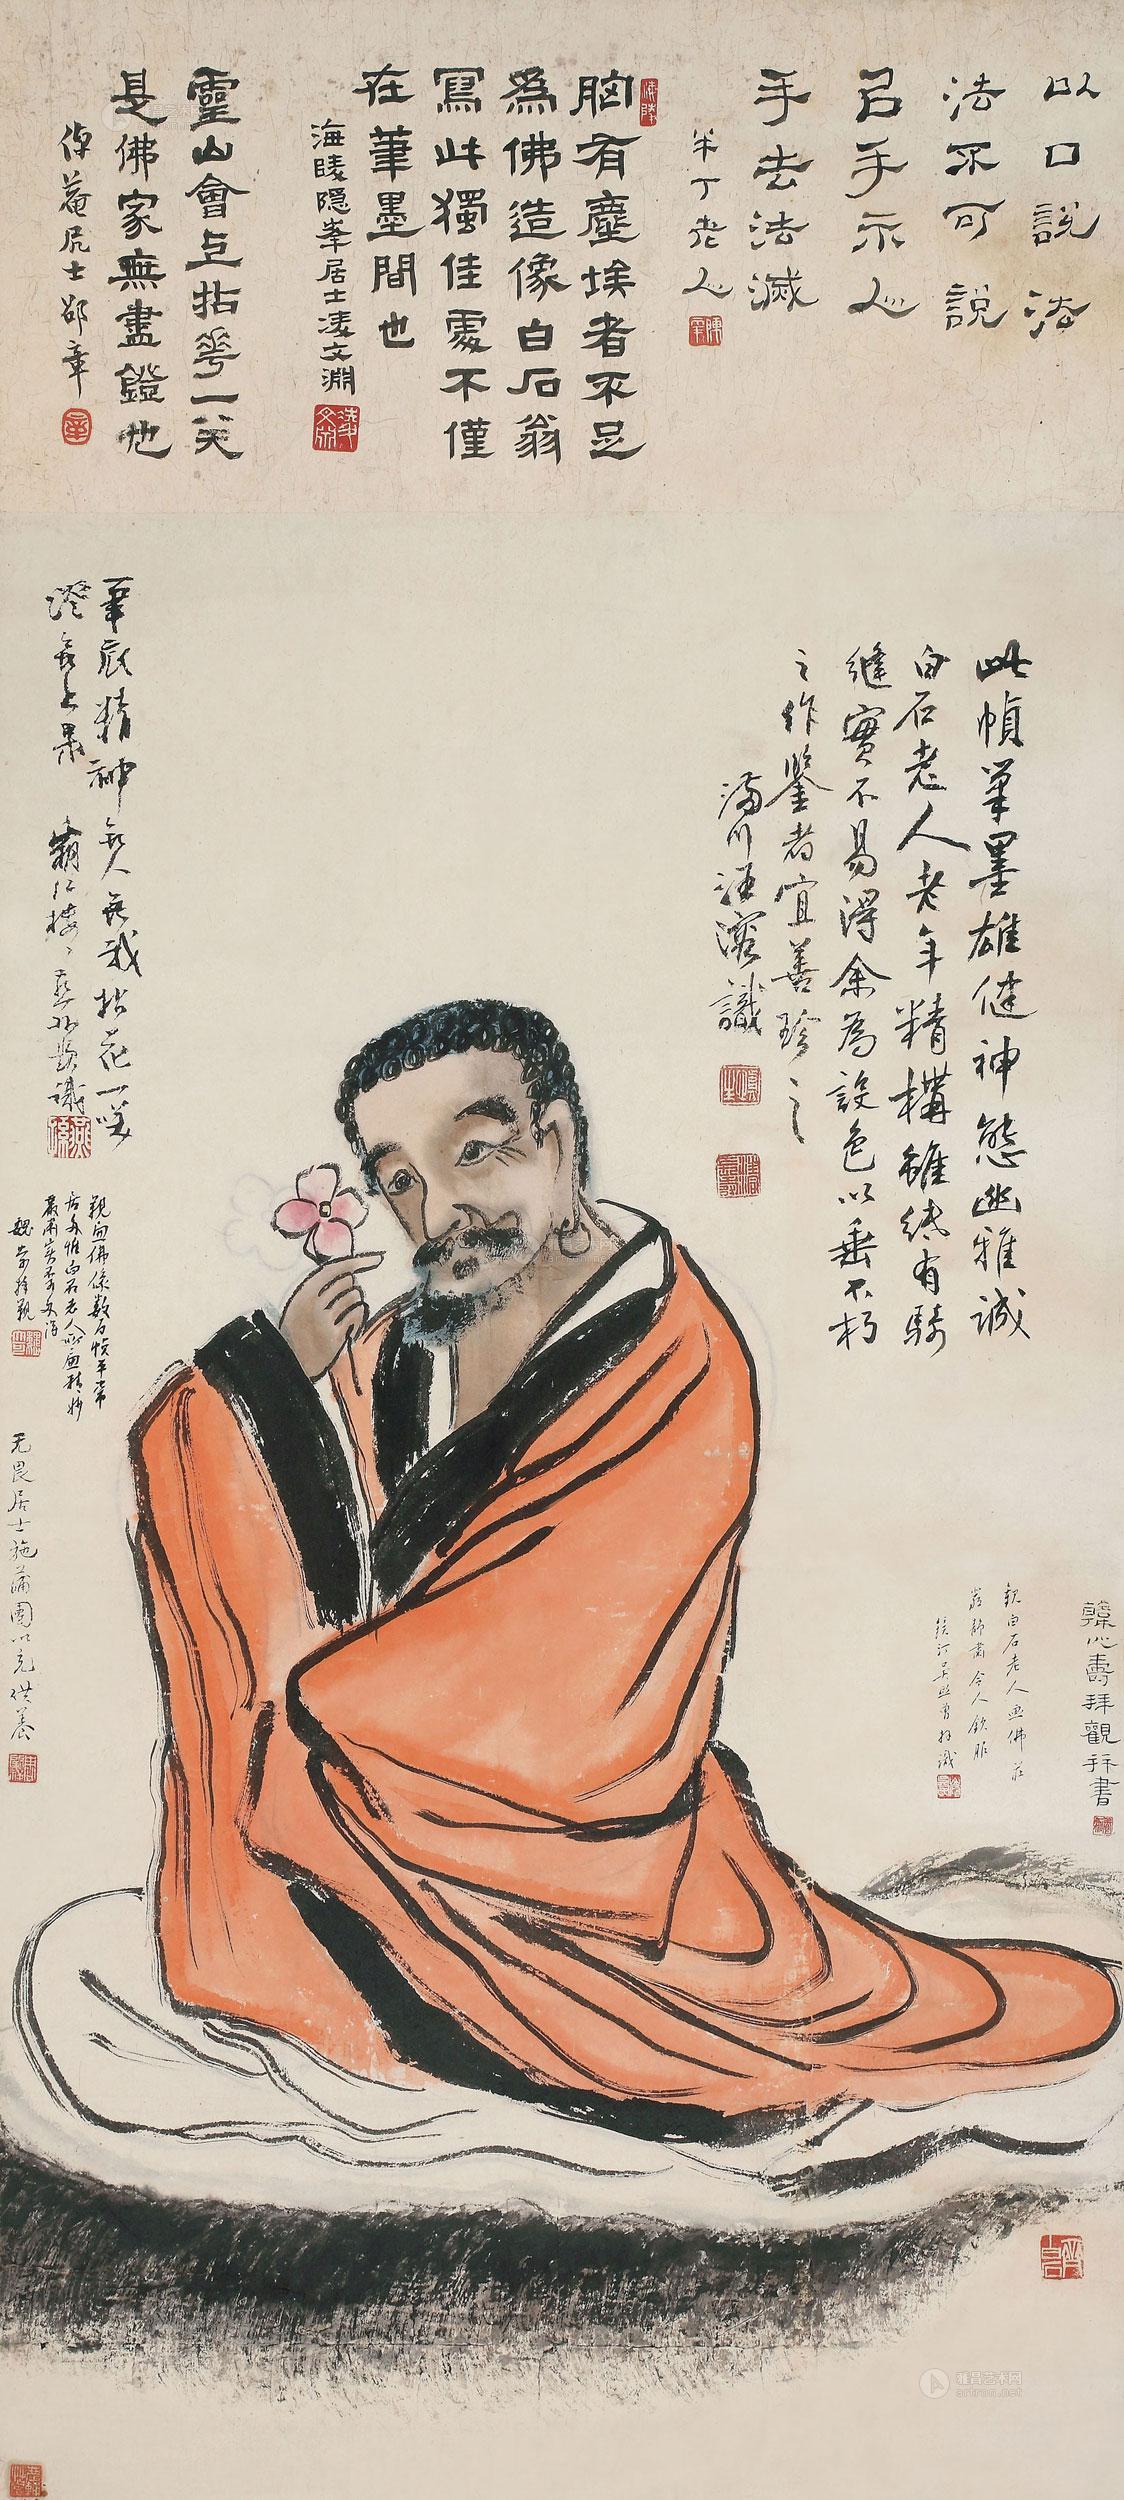 以口說法
法不可說
召手示人
手去法滅
半丁老人
胸有塵埃者不足
為佛造像白石翁
寫此獨佳處不僅
在筆墨間也
海陵隱峯居士凌文淵
靈山會上拈花一笑
是佛家無盡鐙也
倬菴居士邵章
此幀筆墨雄健神態幽雅誠
白石老人老年精構雖絑有騎
縫實不易得余為設色以垂不朽
之作鑒者宜善珍之
汪溶識
筆底精神無人無我拈花一笑
證無上果
親畫佛像數百幀平常
居多惟白石老人所畫精妙
无畏居士施蒲團以充供養
觀白石老人画佛莊
嚴靜肅令人欽服
心壽拜觀并書
雅昌艺术网
artron.net